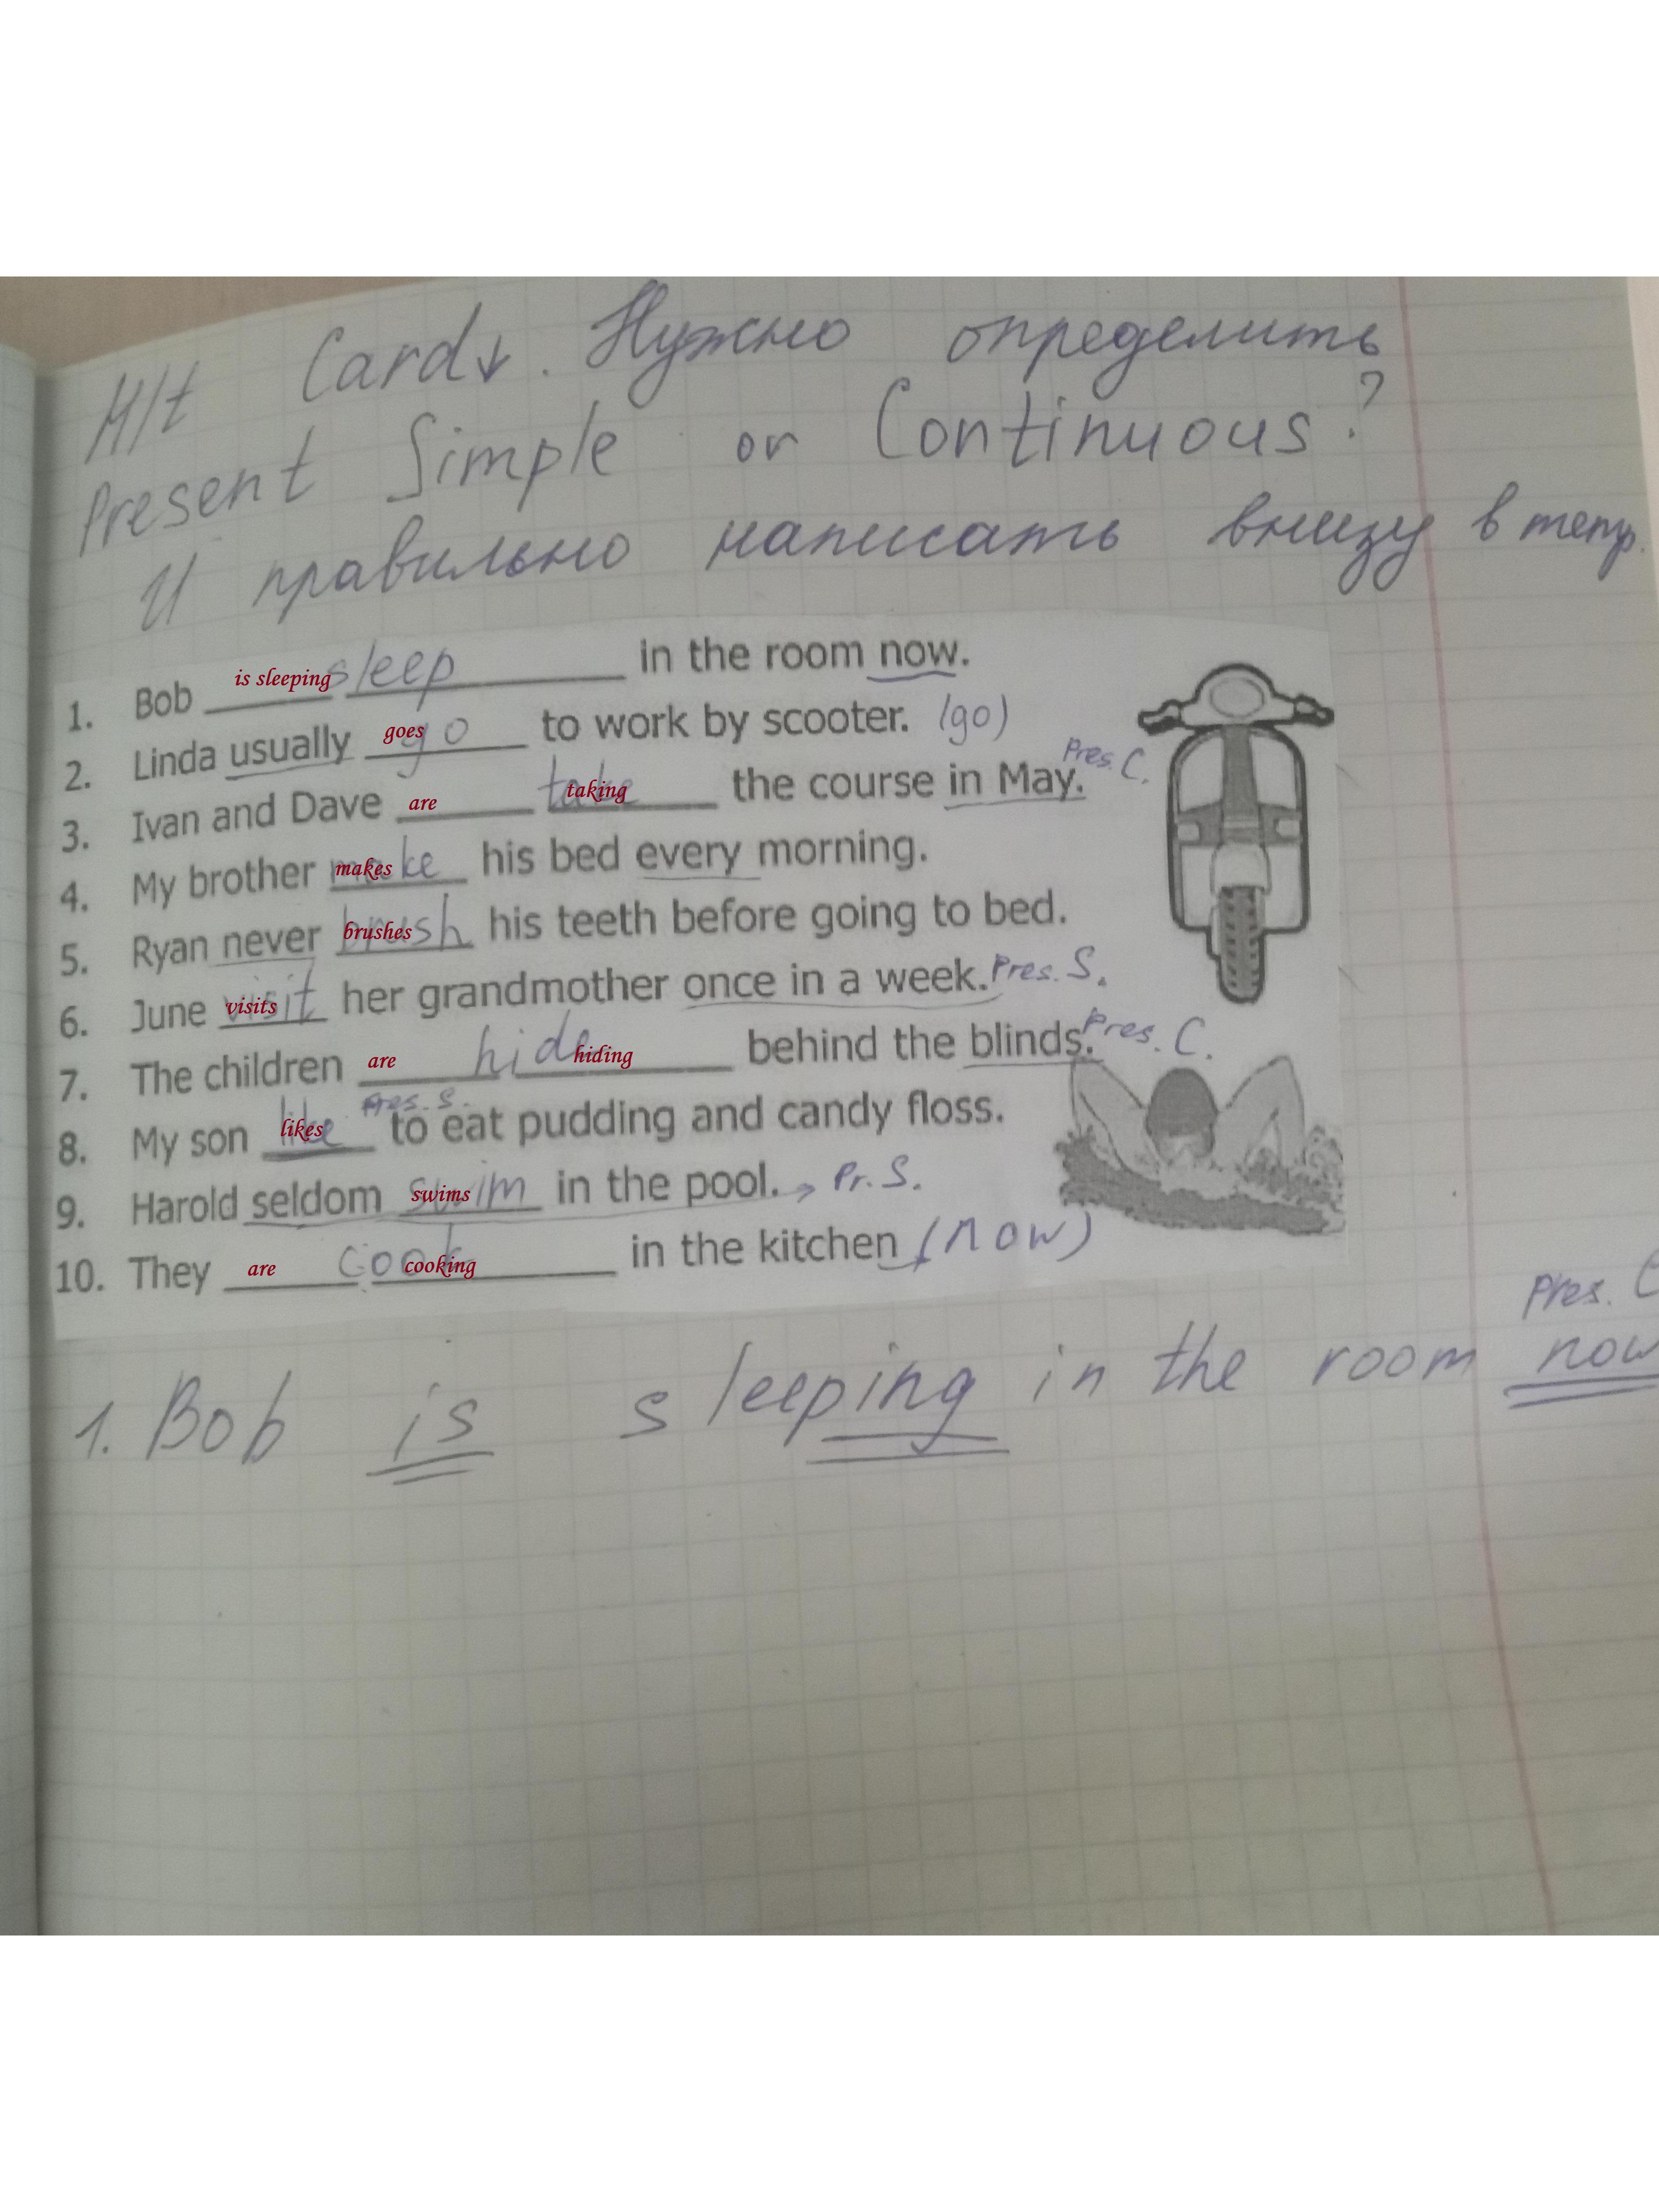 H/t Card↓. Нужно определить
Present Simple or Continuous?
И правильно написать внизу в тетр.
1. Bob is sleeping sleep in the room now.
2. Linda usually goes go to work by scooter. (go)
3. Ivan and Dave are take taking the course in May. Pres. C.
4. My brother makes make his bed every morning.
5. Ryan never brushes brush his teeth before going to bed.
6. June visits visit her grandmother once in a week. Pres. S.
7. The children are hide hiding behind the blinds. Pres. C.
8. My son likes like Pres. S. to eat pudding and candy floss.
9. Harold seldom swims swim in the pool. → Pr. S.
10. They are cook cooking in the kitchen (now)
Pres. C
1. Bob is sleeping in the room now